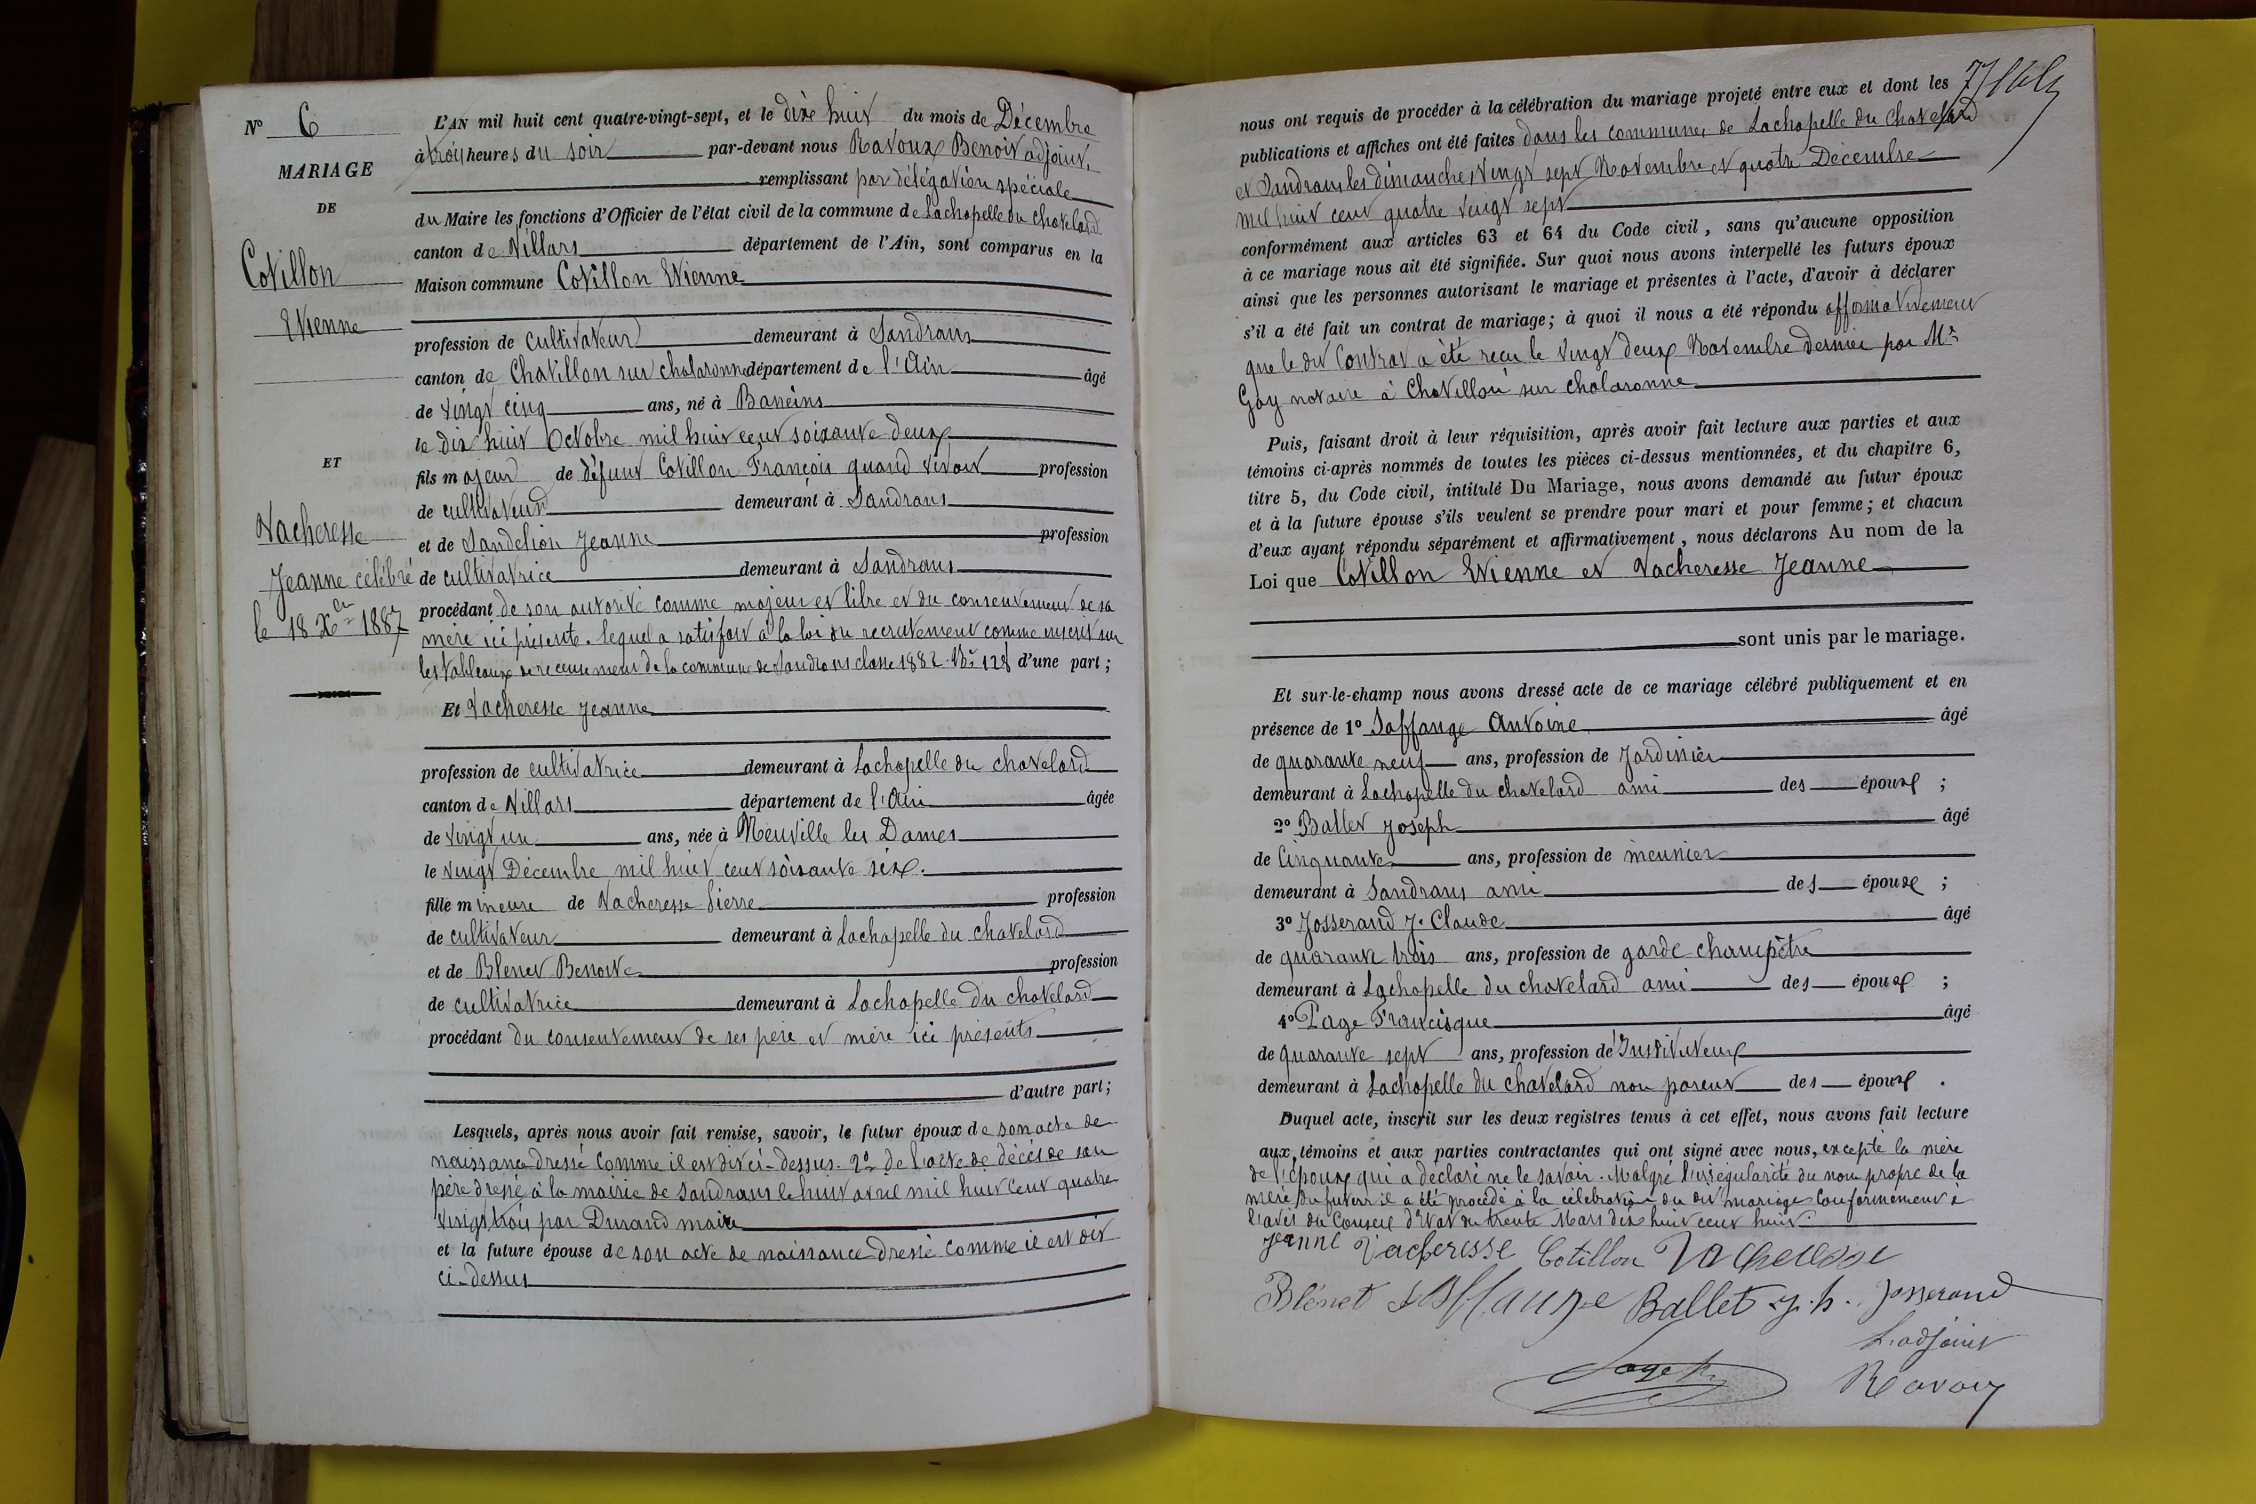 N° 6
MARIAGE
DE
Cotillon
Etienne
ET
Vacheresse
Jeanne célébré
le 18 Xbre 1887
L'AN mil huit cent quatre-vingt-sept, et le dix huit du mois de Décembre
à trois heures du soir par-devant nous Ravoux Benoit adjoint,
remplissant par délégation spéciale
du Maire les fonctions d'Officier de l'état civil de la commune de Lachapelle du chatelard
canton de Villars département de l'Ain, sont comparus en la
Maison commune Cotillon Etienne
profession de cultivateur demeurant à Sandrans
canton de Chatillon sur chalaronne département de l'Ain âgé
de vingt cinq ans, né à Baneins
le dix huit Octobre mil huit cent soixante deux
fils majeur de défunt Cotillon François quand vivait profession
de cultivateur demeurant à Sandrans
et de Sandelion Jeanne profession
de cultivatrice demeurant à Sandrans
procédant de son autorité comme majeur et libre et du consentement de sa
mère ici présente. lequel a satisfait à la loi du recrutement comme inscrit sur
les tableaux de recensement de la commune de Sandrans classe 1882 N° 128 d'une part;
Et Vacheresse Jeanne
profession de cultivatrice demeurant à Lachapelle du chatelard
canton de Villars département de l'Ain âgée
de vingt un ans, née à Neuville les Dames
le vingt Décembre mil huit cent soixante six.
fille mineure de Vacheresse Pierre profession
de cultivateur demeurant à Lachapelle du chatelard
et de Blenet Benoite profession
de cultivatrice demeurant à Lachapelle du chatelard
procédant du consentement de ses père et mère ici présents
d'autre part;
Lesquels, après nous avoir fait remise, savoir, le futur époux de son acte de
naissance dressé comme il est dit ci-dessus. 2° de l'acte de décès de son
père dressé à la mairie de Sandrans le huit avril mil huit cent quatre
vingt trois par Durand maire
et la future épouse de son acte de naissance dressé comme il est dit
ci-dessus
nous ont requis de procéder à la célébration du mariage projeté entre eux et dont les
publications et affiches ont été faites dans les communes de Lachapelle du Chatelard
et Sandrans les dimanches vingt sept Novembre et quatre Décembre
mil huit cent quatre vingt sept
conformément aux articles 63 et 64 du Code civil, sans qu'aucune opposition
à ce mariage nous ait été signifiée. Sur quoi nous avons interpellé les futurs époux
ainsi que les personnes autorisant le mariage et présentes à l'acte, d'avoir à déclarer
s'il a été fait un contrat de mariage; à quoi il nous a été répondu affirmativement
que le dit Contrat a été reçu le vingt deux Novembre dernier par Mr
Gay notaire à Chatillon sur chalaronne
Puis, faisant droit à leur réquisition, après avoir fait lecture aux parties et aux
témoins ci-après nommés de toutes les pièces ci-dessus mentionnées, et du chapitre 6,
titre 5, du Code civil, intitulé Du Mariage, nous avons demandé au futur époux
et à la future épouse s'ils veulent se prendre pour mari et pour femme; et chacun
d'eux ayant répondu séparément et affirmativement, nous déclarons Au nom de la
Loi que Cotillon Etienne et Vacheresse Jeanne
sont unis par le mariage.
Et sur-le-champ nous avons dressé acte de ce mariage célébré publiquement et en
présence de 1° Saffange Antoine âgé
de quarante neuf ans, profession de Jardinier
demeurant à Lachapelle du chatelard ami des époux ;
2° Ballet Joseph âgé
de Cinquante ans, profession de meunier
demeurant à Sandrans ami des époux ;
3° Josserand J. Claude âgé
de quarante trois ans, profession de garde champêtre
demeurant à Lachapelle du chatelard ami des époux ;
4° Page Francisque âgé
de quarante sept ans, profession de Instituteur
demeurant à Lachapelle du chatelard non parent des époux .
Duquel acte, inscrit sur les deux registres tenus à cet effet, nous avons fait lecture
aux témoins et aux parties contractantes qui ont signé avec nous, excepté la mère
de l'époux qui a déclaré ne le savoir. Malgré l'irrégularité du nom propre de la
mère du futur il a été procédé à la célébration du dit mariage Conformément à
l'avis du Conseil d'Etat du trente Mars dix huit cent huit.
Jeanne Vacheresse Cotillon Vacheresse
Blénet Saffange Ballet j.h. Josserand
L'adjoint
Page fr
Ravoux